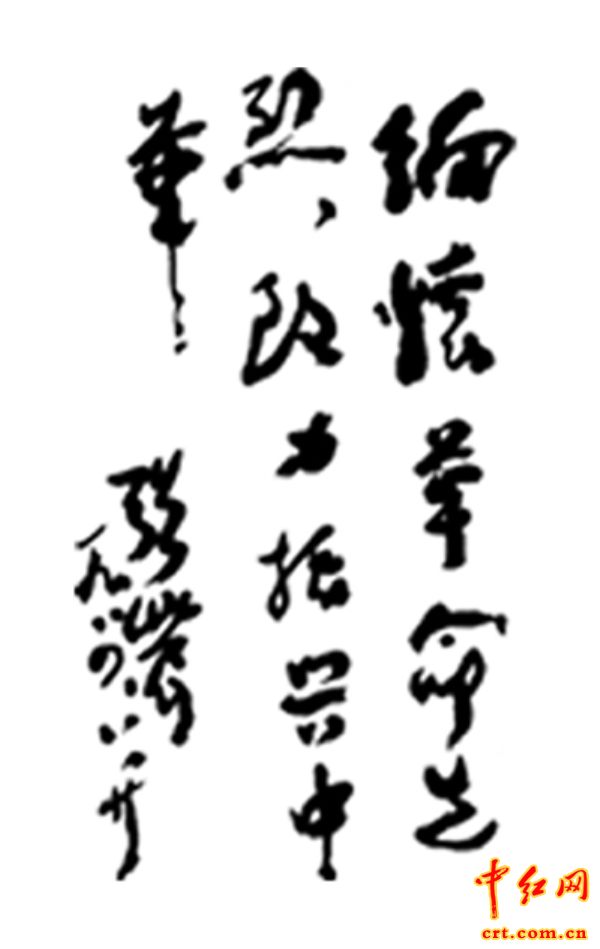 缅怀革命先
烈、致力振兴中
華
一九八四、八、廿
中红网
crt.com.cn